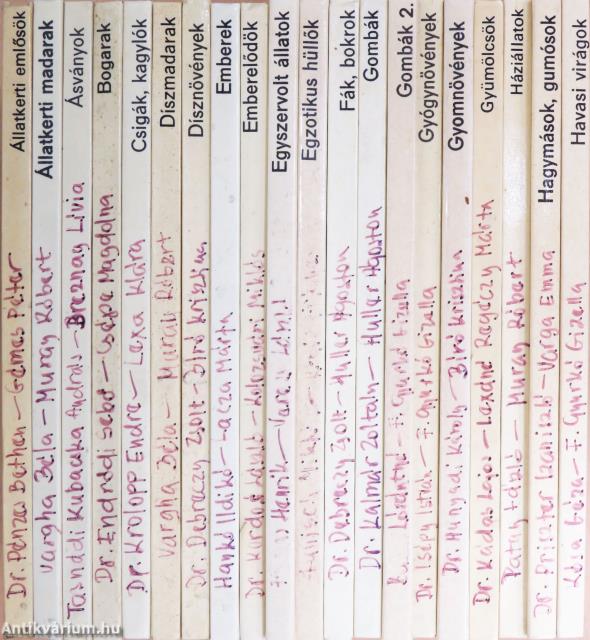 Állatkerti emlősök
Dr. Pénzes Bethen - Gémes Péter
Állatkerti madarak
Vargha Béla - Muray Róbert
Ásványok
Tasnádi Kubacska András - Breznay Lívia
Bogarak
Dr. Endrődi Sebő - Csépe Magdolna
Csigák, kagylók
Dr. Krolopp Endre - Lexa Klára
Díszmadarak
Vargha Béla - Muray Róbert
Dísznövények
Dr. Debreczy Zsolt - Bíró Krisztina
Emberek
Hankó Ildikó - Lacza Márta
Emberelődök
Dr. László - Miklós
Egyszervolt állatok
Henrik - Vares
Egzotikus hüllők
Miklós
Fák, bokrok
Dr. Debreczy Zsolt - Huller Ágoston
Gombák
Dr. Kalmár Zoltán - Huller Ágoston
Gombák 2.
F. Győrkő Gizella
Gyógynövények
Dr. István - F. Győrkő Gizella
Gyomnövények
Dr. Hunyadi Károly - Bíró Krisztina
Gyümölcsök
Dr. Kádas Lajos - Lexáné Regéczy Márta
Háziállatok
Patay László - Muray Róbert
Hagymások, gumósok
Dr. Priszter Szaniszló - Varga Emma
Havasi virágok
Géza - F. Győrkő Gizella
Antikvárium.hu